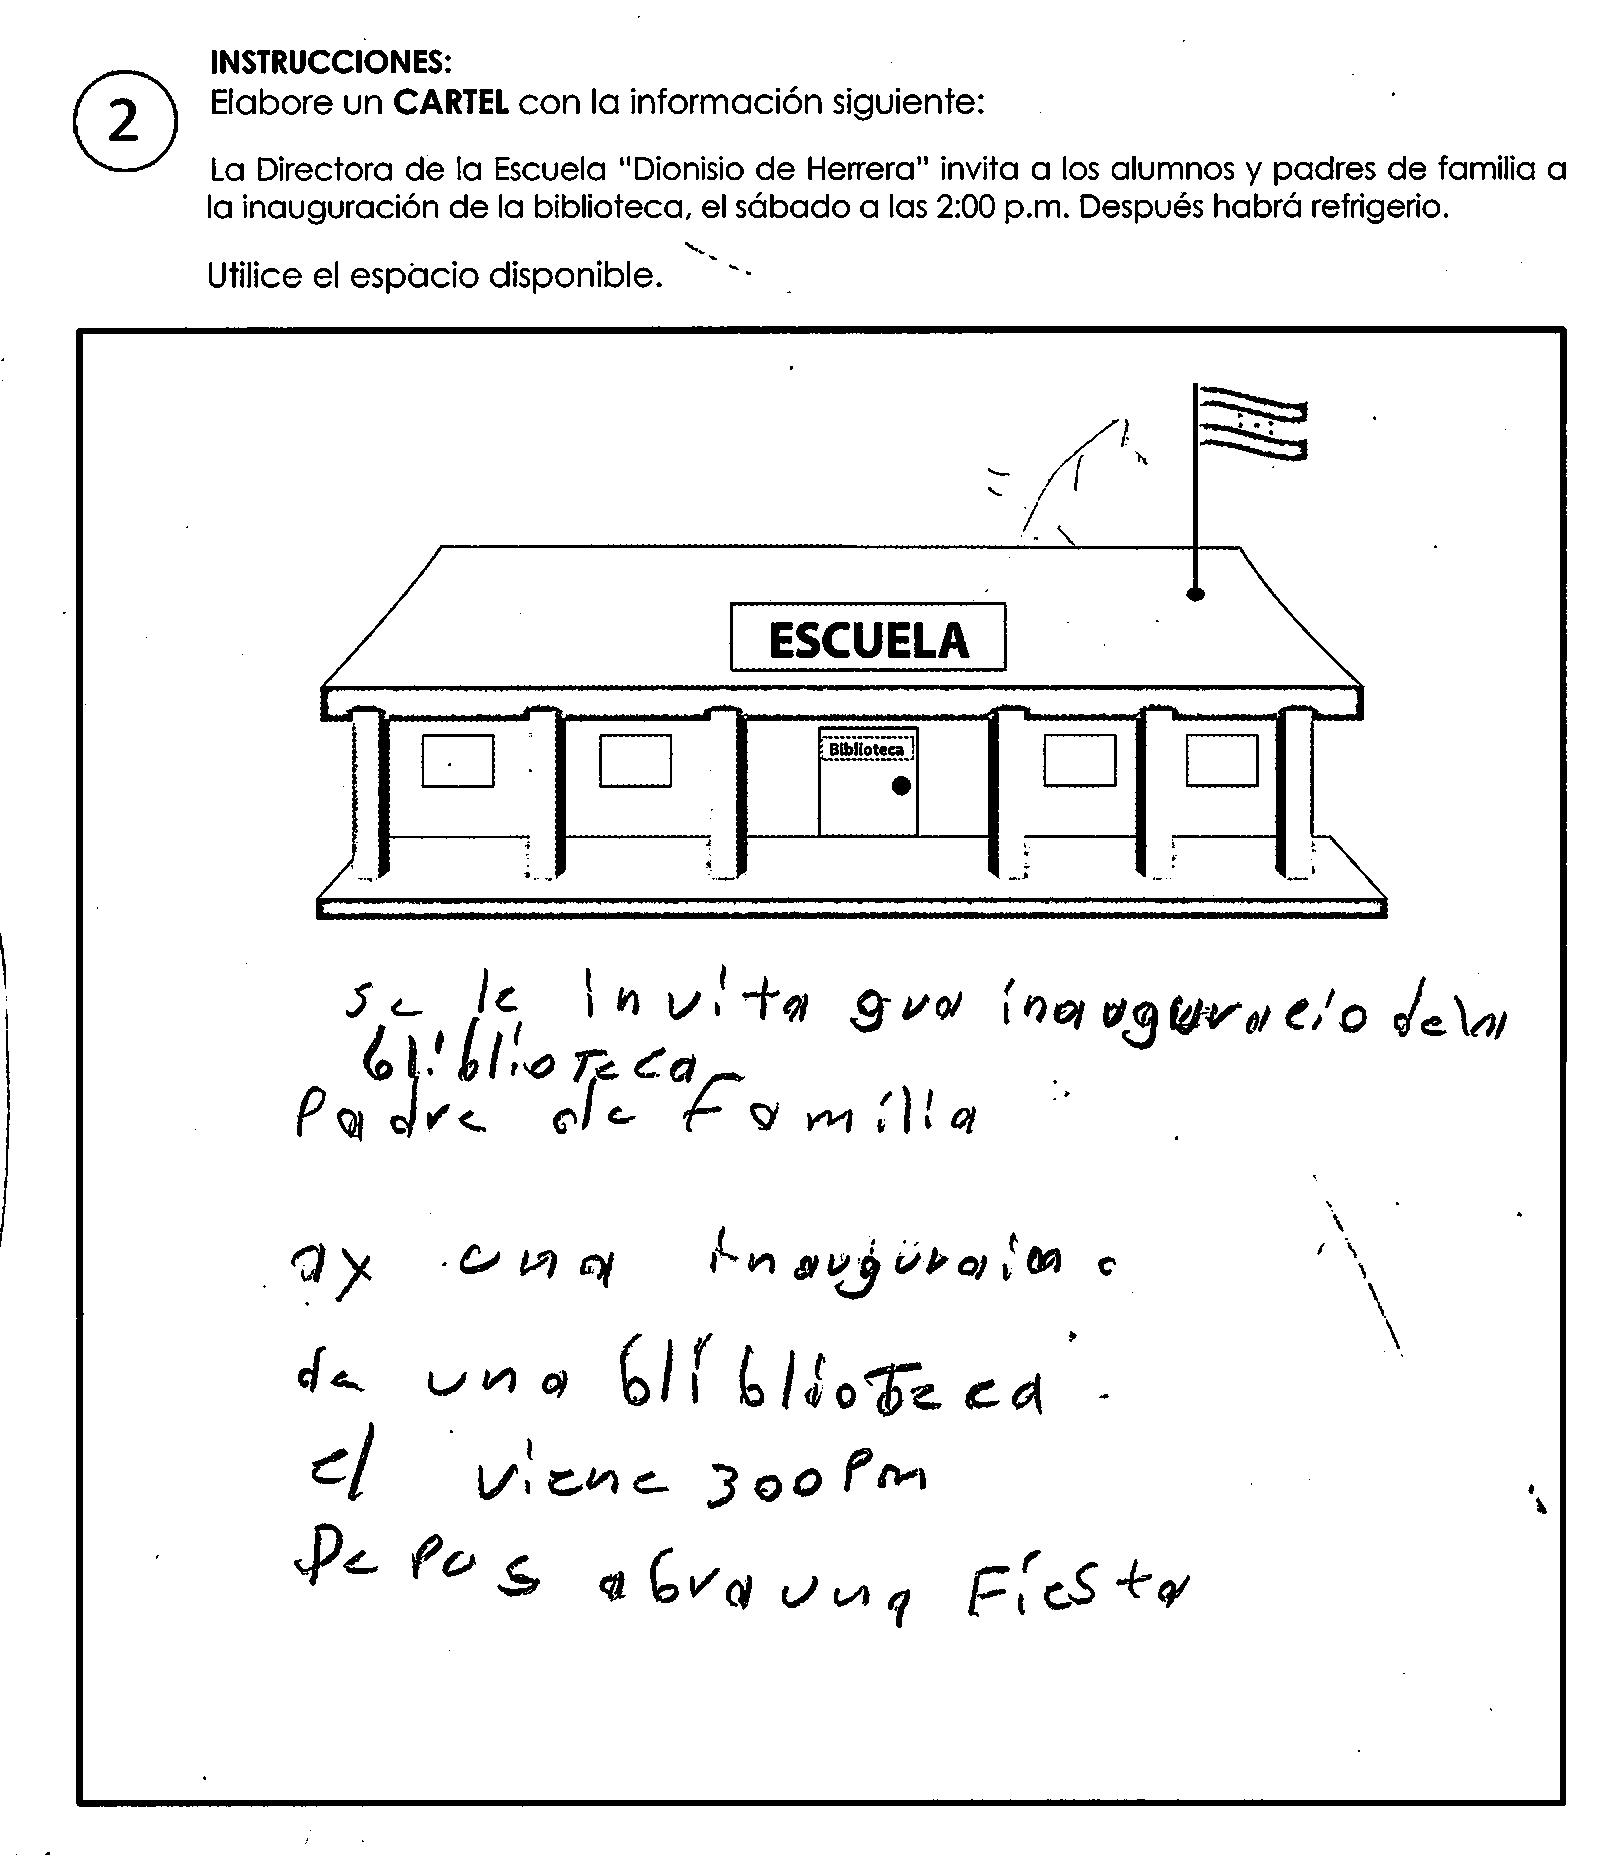 INSTRUCCIONES:
2
Elabore un CARTEL con la información siguiente:
La Directora de la Escuela "Dionisio de Herrera" invita a los alumnos y padres de familia a
la inauguración de la biblioteca, el sábado a las 2:00 p.m. Después habrá refrigerio.
Utilice el espacio disponible.
ESCUELA
Biblioteca
se le invita gua inauguracio dela
bliblioteca
Padre de Familia
ay una
de una bliblioteca
el viene 300 Pm
Depos abra una Fiesta